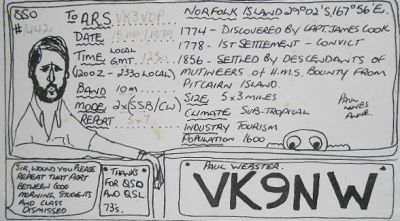 QSO
#442
TO A.R.S. VK3VDP
DATE
TIME LOCAL
GMT.
(1200 Z - 2330 LOCAL)
BAND 10M
MODE 2x(SSB/CW)
REPORT 5x7
NORFOLK ISLAND 29°02'S, 167°56'E.
1774 - DISCOVERED BY CAPT. JAMES COOK
1778 - 1ST SETTLEMENT - CONVICT
1856 - SETTLED BY DESCENDANTS OF
MUTINEERS OF H.M.S. BOUNTY FROM
PITCAIRN ISLAND.
SIZE 5 x 3 MILES
CLIMATE SUB-TROPICAL
INDUSTRY TOURISM
POPULATION 1600
PAUL
LOVES
ANNE
SIR, WOULD YOU PLEASE
REPEAT THAT PART
BETWEEN GOOD
MORNING, STUDENTS
AND CLASS
DISMISSED
THANKS
FOR
QSO
AND QSL
73's.
PAUL WEBSTER.
VK9NW